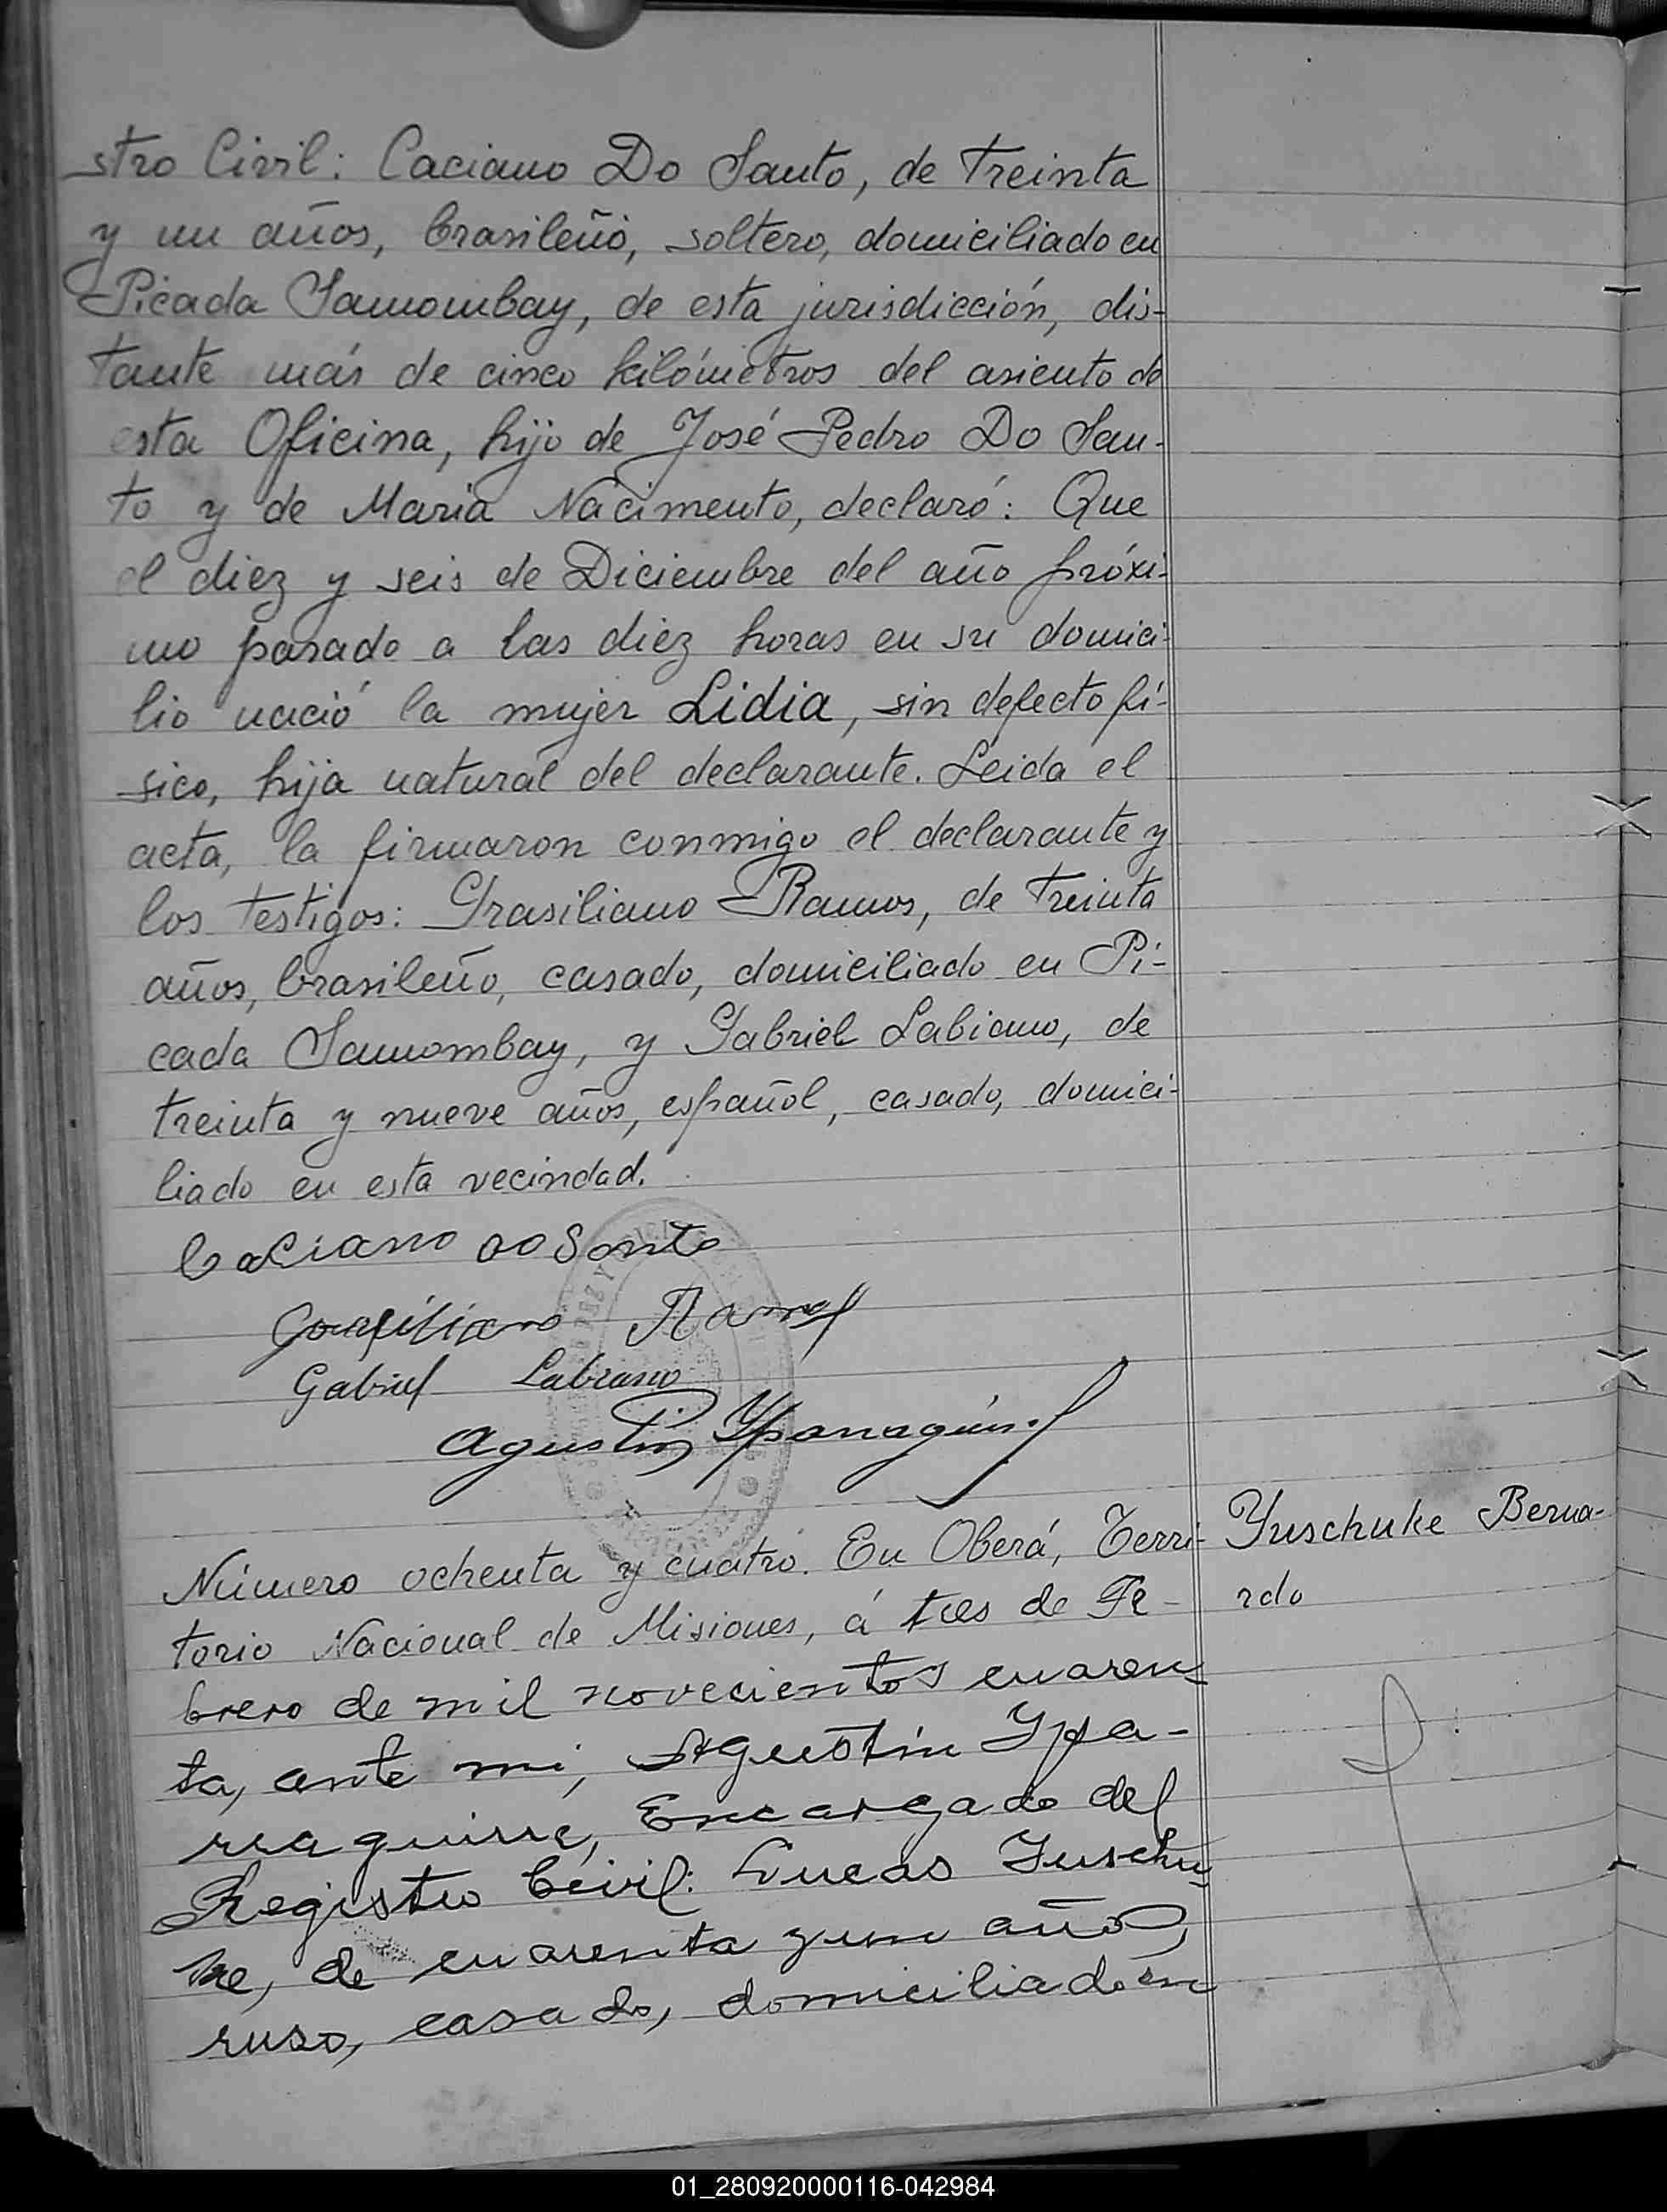 stro Civil: Caciano Do Santo, de treinta
y un años, brasileño, soltero, domiciliado en
Picada Samambay, de esta jurisdicción, dis-
tante más de cinco kilómetros del asiento de
esta Oficina, hijo de José Pedro Do San-
to y de Maria Nacimento, declaró: Que
el diez y seis de Diciembre del año próxi-
mo pasado a las diez horas en su domici-
lio nació la mujer Lidia, sin defecto fí-
sico, hija natural del declarante. Leida el
acta, la firmaron conmigo el declarante y
los testigos: Grasiliano Ramos, de treinta
años, brasileño, casado, domiciliado en Pi-
cada Samambay, y Gabriel Labiano, de
treinta y nueve años, español, casado, domici-
liado en esta vecindad.
Caciano do Santo
Ramos
Gabriel Labiano
Agustin Yparraguirre
Número ochenta y cuatro. En Oberá, Terri-
torio Nacional de Misiones, á tres de Fe-
brero de mil novecientos cuaren-
ta, ante mi, Agustín Ypa-
rraguirre, Encargado del
Registro Civil: Lucas Yuschu-
ke, de cuarenta y un años,
ruso, casado, domiciliado en
Yuschuke Berna-
rdo
01_280920000116-042984